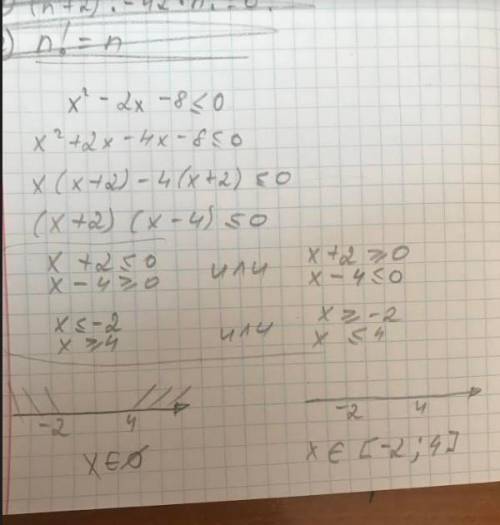 (n+2)! - 42 · n! = 0.
) n! = n
x² - 2x - 8 ≤ 0
x² + 2x - 4x - 8 ≤ 0
x (x+2) - 4 (x+2) ≤ 0
(x+2) (x-4) ≤ 0
x + 2 ≤ 0 или x + 2 ≥ 0
x - 4 ≥ 0 x - 4 ≤ 0
x ≤ -2 или x ≥ -2
x ≥ 4 x ≤ 4
-2 4 -2 4
x ∈ ∅ x ∈ [-2; 4]